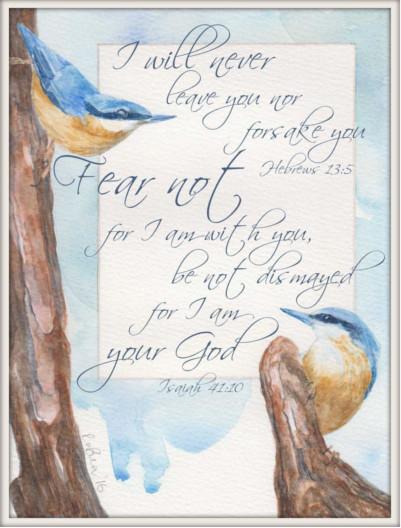 I will never
leave you nor
forsake you
Hebrews 13:5
Fear not
for I am with you,
be not dismayed
for I am
your God
Isaiah 41:10